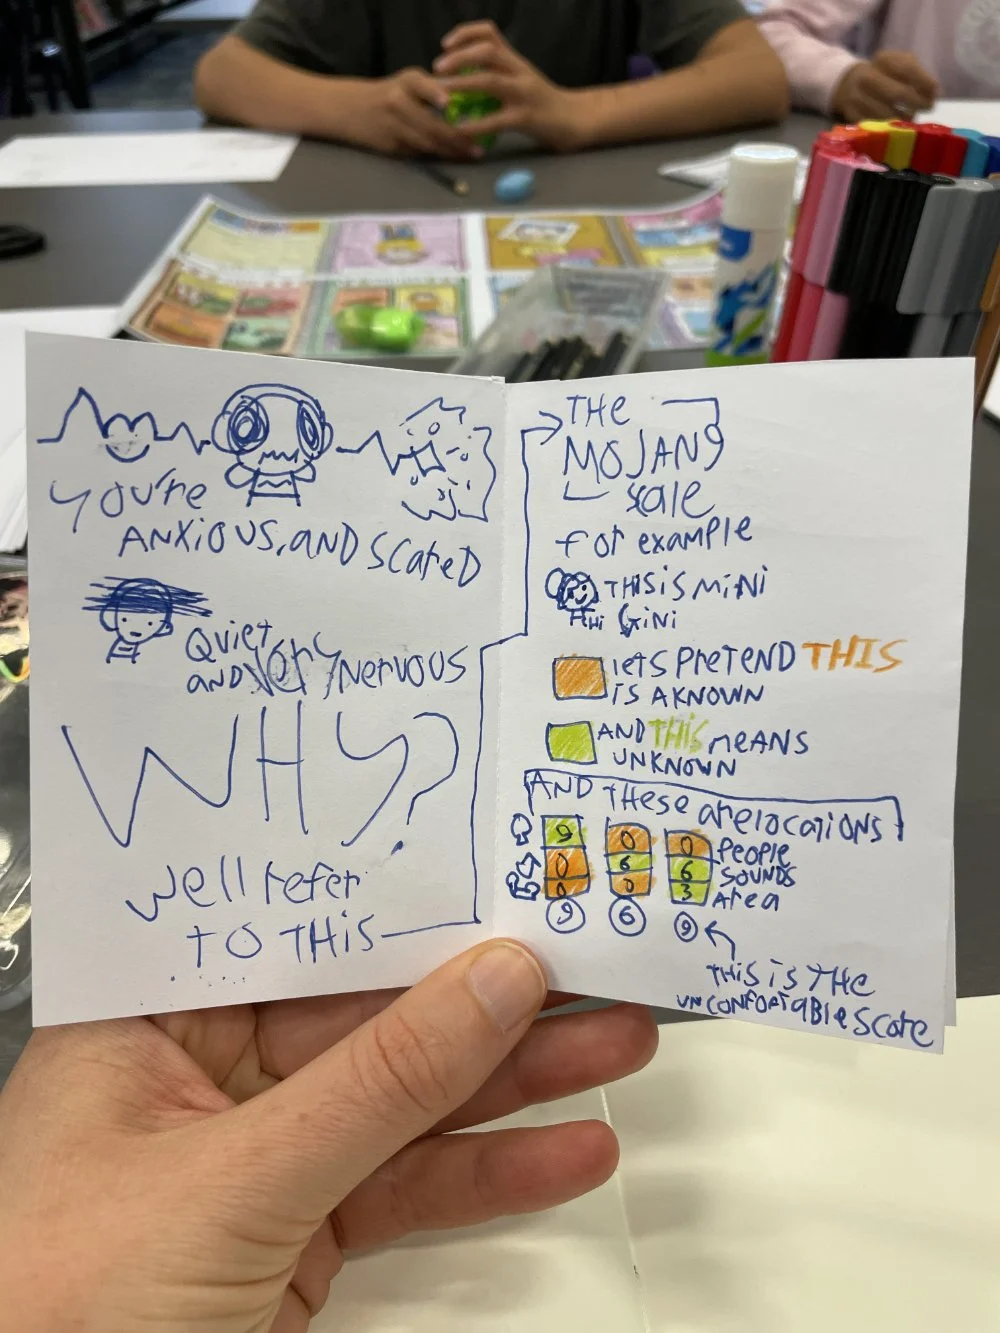 YOU'RE
ANXIOUS, AND SCAReD
QUieT
AND VerY NerVOUS
WHY?
well refer
TO THiS
THe
MOJANG
scale
for example
THiS iS MiNi
Hi GiNi
leTS PreTEND THIS
IS A KNOWN
AND THiS MEANS
UNKNOWN
AND THESE are locATiONS
9 0 0 PeoPle
0 6 6 SOUNDS
0 0 3 Area
9 6 9
THiS iS THE
UNCONFORTABlE SCOre